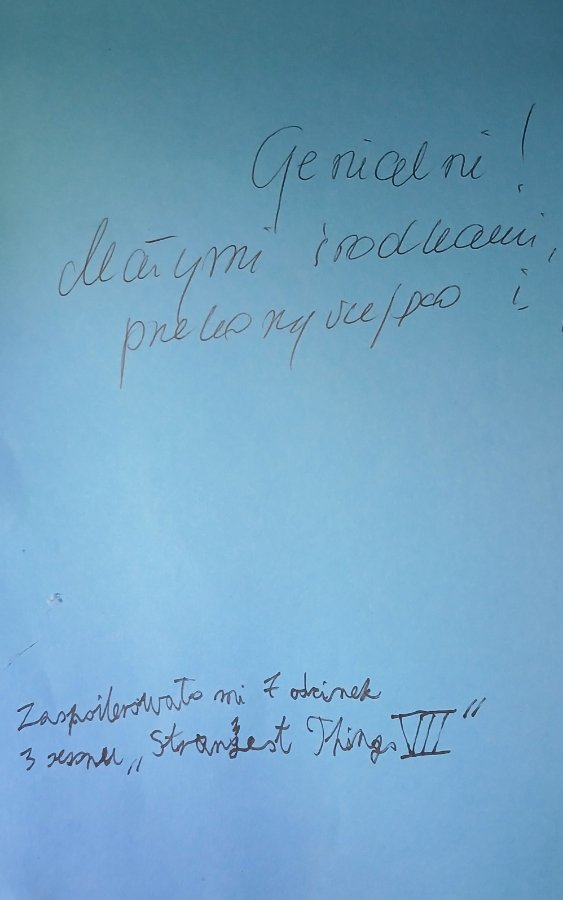 Genialni!
Małymi środkami,
przekonywująco i
Zaspoilerowało mi 7 odcinek
3 sezonu „Strangest Things VIII”